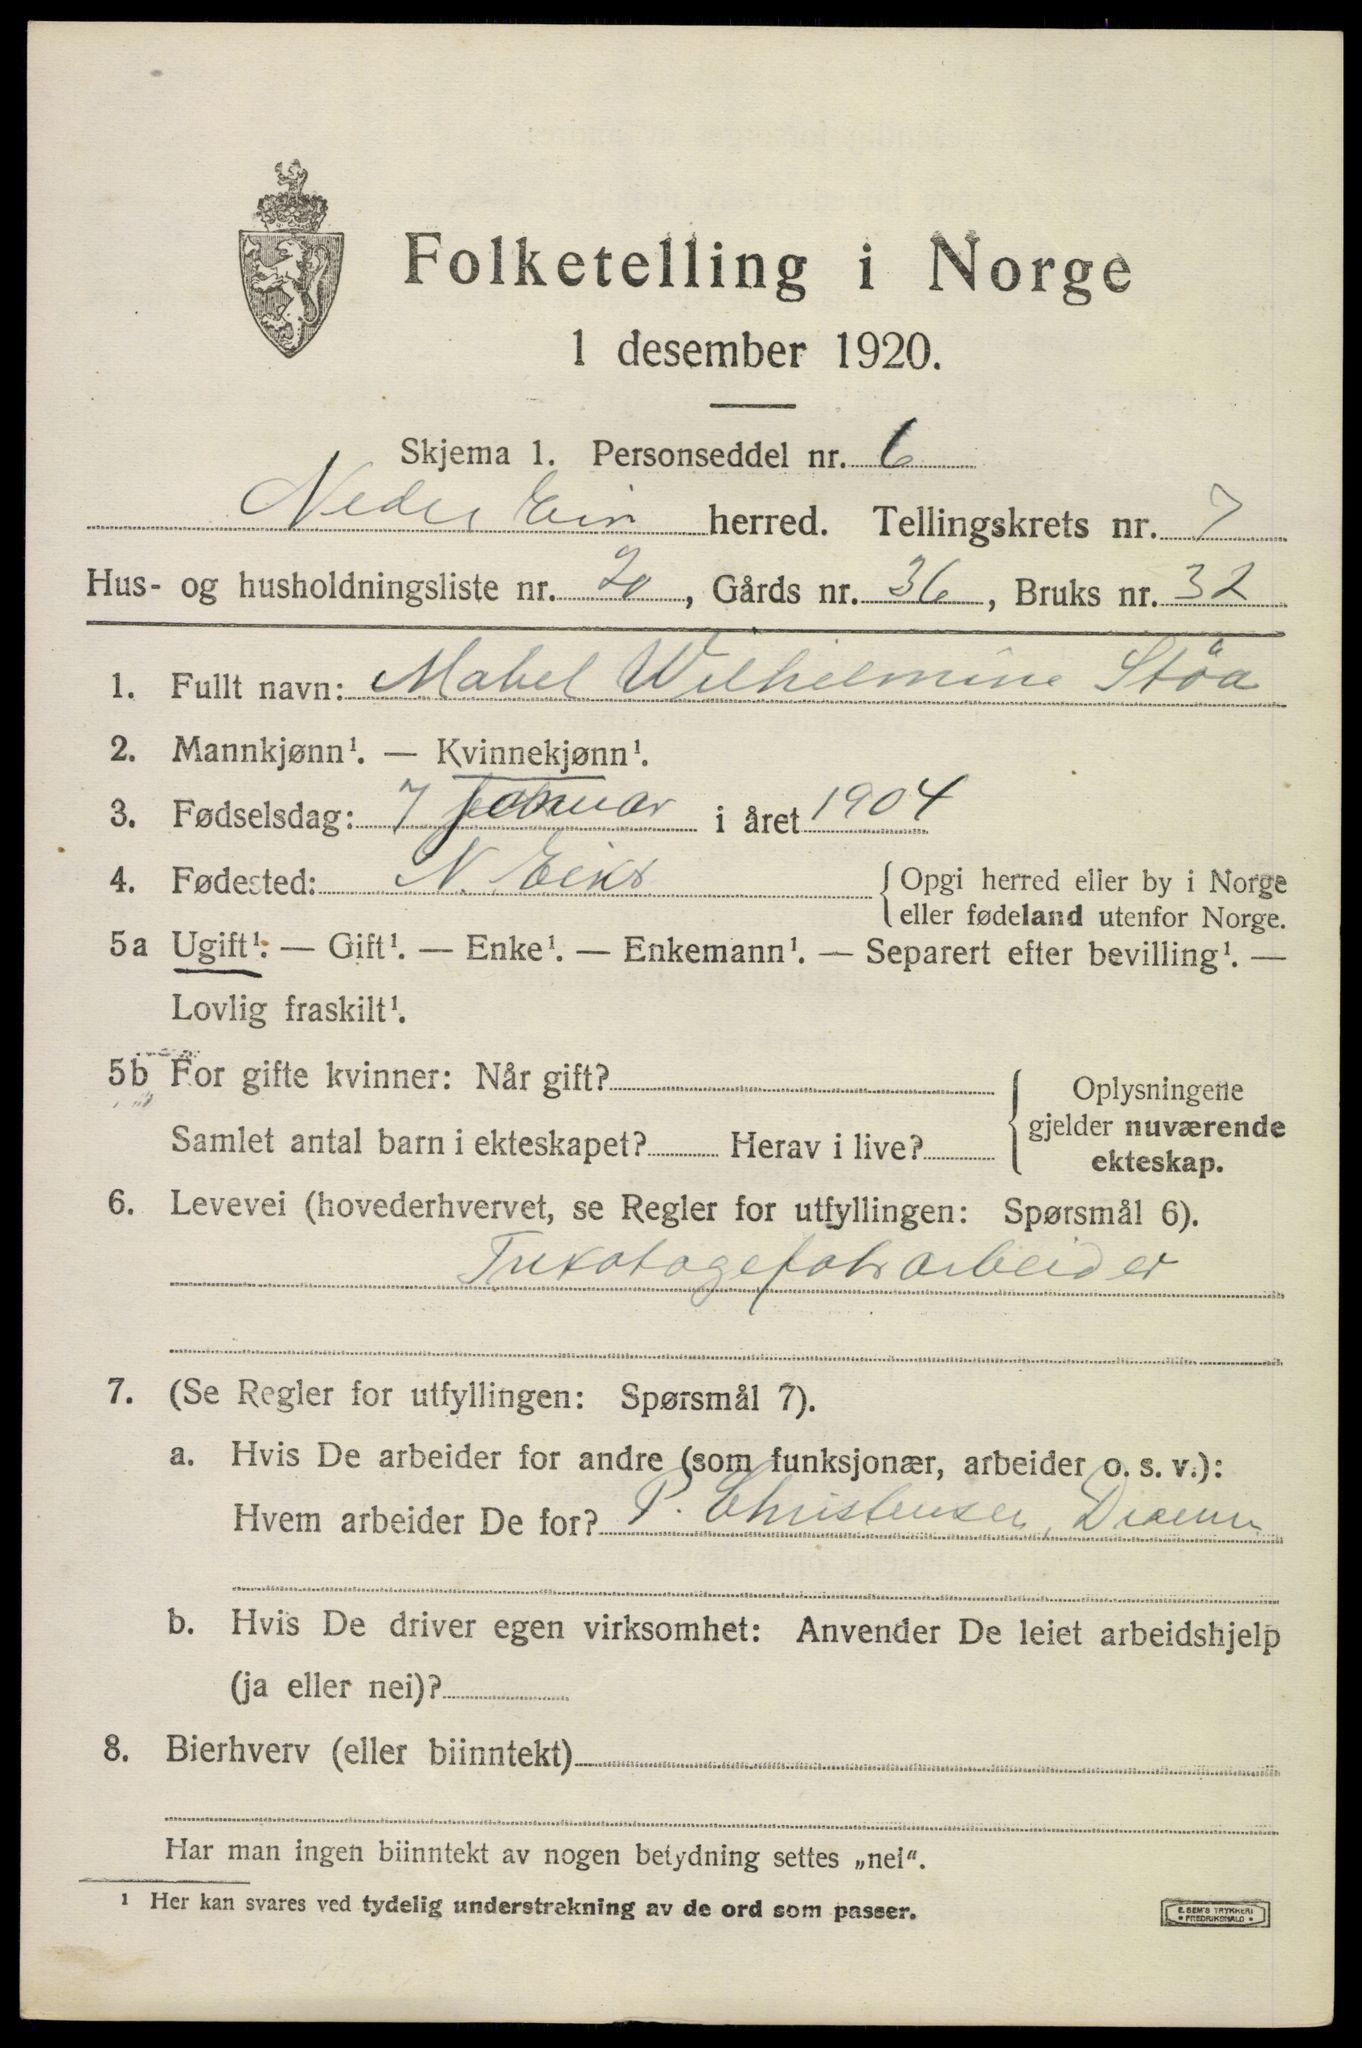 Folketelling i Norge
1 desember 1920.
Skjema 1. Personseddel nr. 6
Nedre Eiker herred. Tellingskrets nr. 7
Hus- og husholdningsliste nr. 20, Gårds nr. 36, Bruks nr. 32
1. Fullt navn: Mabel Wilhelmine Støa
2. Mannkjønn¹. — Kvinnekjønn¹.
3. Fødselsdag: 7 januar i året 1904
4. Fødested: N. Eiker {Opgi herred eller by i Norge
eller fødeland utenfor Norge.
5a Ugift¹. — Gift¹. — Enke¹. — Enkemann¹. — Separert efter bevilling¹. —
Lovlig fraskilt¹.
5b For gifte kvinner: Når gift?
Samlet antal barn i ekteskapet? Herav i live?
Oplysningene
gjelder nuværende
ekteskap.
6. Levevei (hovederhvervet, se Regler for utfyllingen: Spørsmål 6).
Trikotagefabrarbeider
7. (Se Regler for utfyllingen: Spørsmål 7).
a. Hvis De arbeider for andre (som funksjonær, arbeider o. s. v.):
Hvem arbeider De for? P. Christensen, Dramm
b. Hvis De driver egen virksomhet: Anvender De leiet arbeidshjelp
(ja eller nei)?
8. Bierhverv (eller biinntekt)
Har man ingen biinntekt av nogen betydning settes „nei“.
¹ Her kan svares ved tydelig understrekning av de ord som passer.
E. SEM'S TRYKKERI
• FREDRIKSHALD •